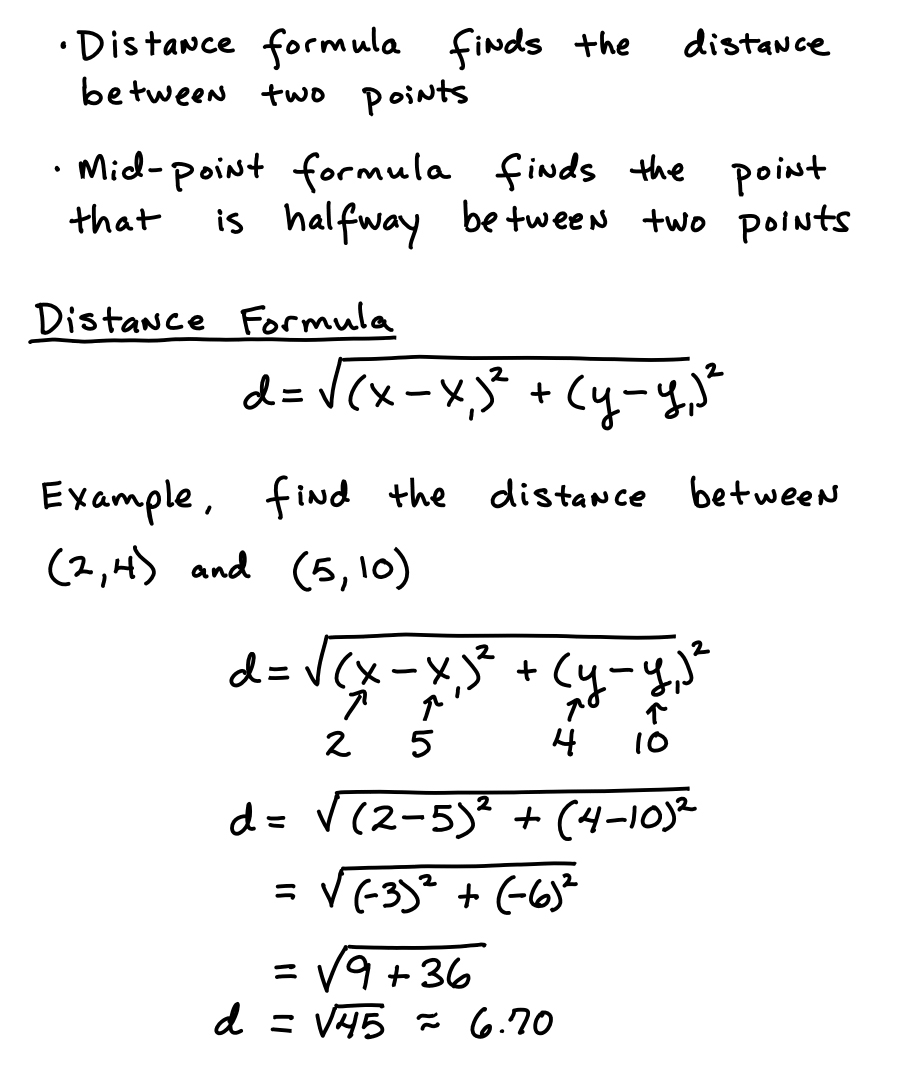 · Distance formula finds the distance
between two points
· Mid-point formula finds the point
that is halfway between two points
Distance Formula
d = √(x - x₁)² + (y - y₁)²
Example, find the distance between
(2,4) and (5,10)
d = √(x - x₁)² + (y - y₁)²
↗ ↑ ↑ ↑
2 5 4 10
d = √(2-5)² + (4-10)²
= √(-3)² + (-6)²
= √9 + 36
d = √45 ≈ 6.70